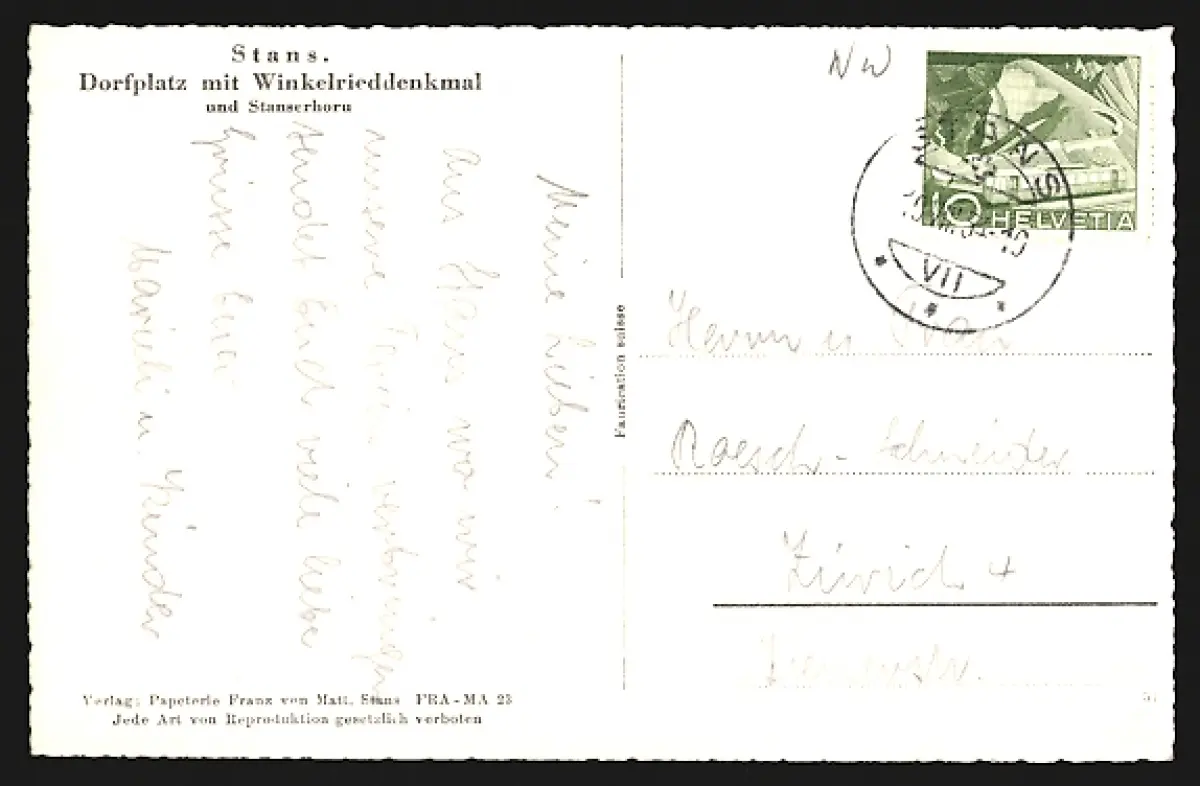 Stans.
Dorfplatz mit Winkelrieddenkmal
und Stanserhorn
Meine Lieben!
Aus Stans wo wir
unsere Ferien verbringen
sendet Euch viele liebe
Grüsse Eure
u. Kinder
Verlag: Papeterie Franz von Matt, Stans FRA-MA 23
Jede Art von Reproduktion gesetzlich verboten
Fabrication suisse
NW
10 HELVETIA
VII
Herrn u Frau
Raesch - Schneider
Zürich 4